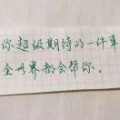 你超级期待的一件事
全世界都会帮你。